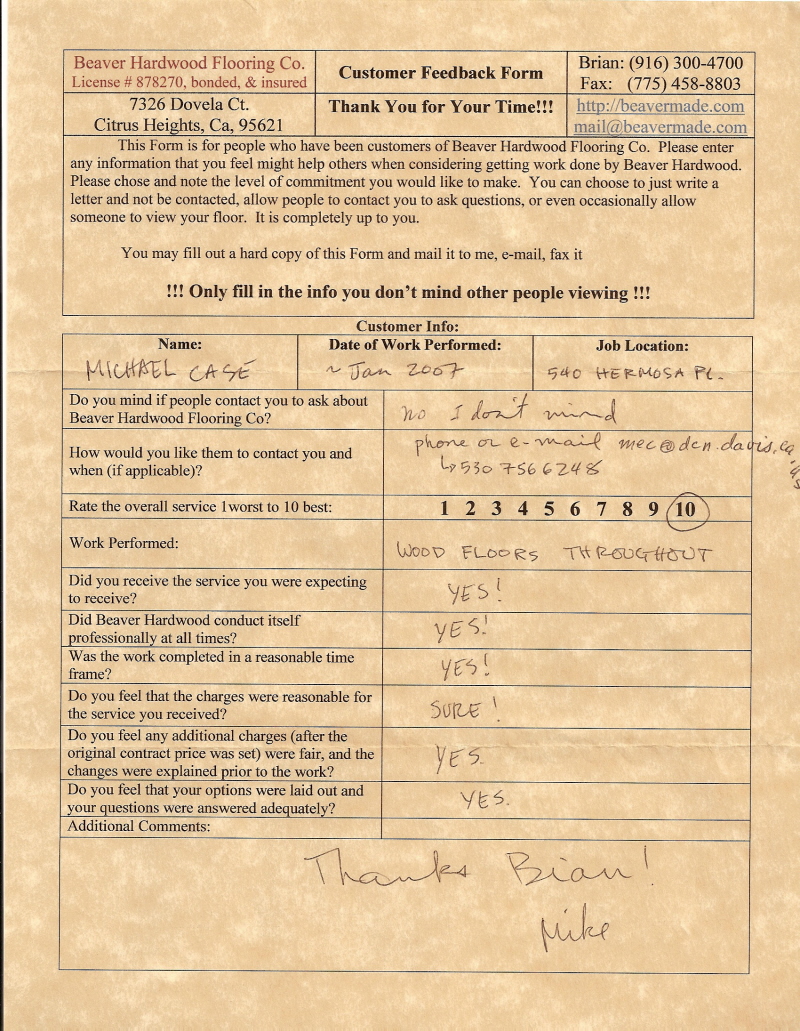 Beaver Hardwood Flooring Co.
License # 878270, bonded, & insured
Customer Feedback Form
Brian: (916) 300-4700
Fax: (775) 458-8803
7326 Dovela Ct.
Citrus Heights, Ca, 95621
Thank You for Your Time!!!
http://beavermade.com
mail@beavermade.com
This Form is for people who have been customers of Beaver Hardwood Flooring Co. Please enter
any information that you feel might help others when considering getting work done by Beaver Hardwood.
Please chose and note the level of commitment you would like to make. You can choose to just write a
letter and not be contacted, allow people to contact you to ask questions, or even occasionally allow
someone to view your floor. It is completely up to you.
You may fill out a hard copy of this Form and mail it to me, e-mail, fax it
!!! Only fill in the info you don't mind other people viewing !!!
Customer Info:
Name:
MICHAEL CASE
Date of Work Performed:
~ Jan 2007
Job Location:
540 HERMOSA PL.
Do you mind if people contact you to ask about
Beaver Hardwood Flooring Co?
no I don't mind
How would you like them to contact you and
when (if applicable)?
phone or e-mail mec@dcn.davis.ca
↳ 530 756 6248
Rate the overall service 1worst to 10 best:
1 2 3 4 5 6 7 8 9 10
Work Performed:
WOOD FLOORS THROUGHOUT
Did you receive the service you were expecting
to receive?
YES!
Did Beaver Hardwood conduct itself
professionally at all times?
YES!
Was the work completed in a reasonable time
frame?
YES!
Do you feel that the charges were reasonable for
the service you received?
SURE!
Do you feel any additional charges (after the
original contract price was set) were fair, and the
changes were explained prior to the work?
YES.
Do you feel that your options were laid out and
your questions were answered adequately?
YES.
Additional Comments:
Thanks Brian!
Mike